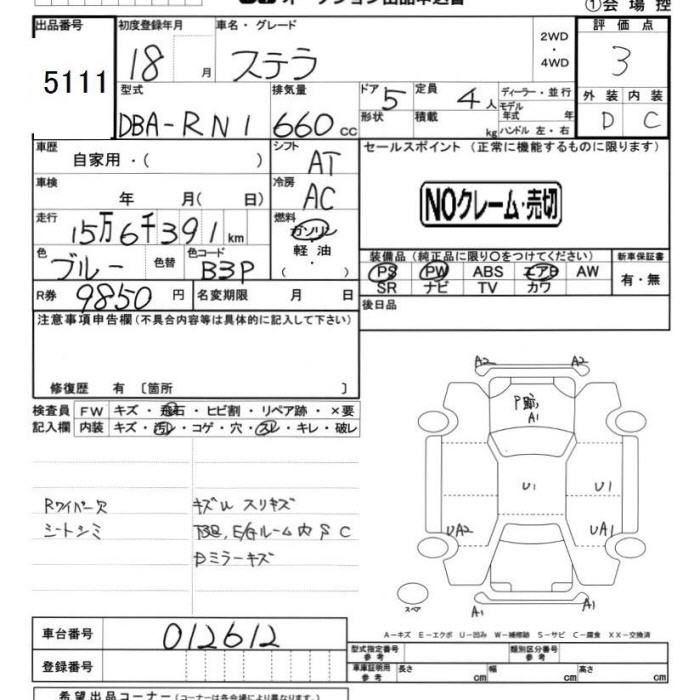 オークション出品申込書 ①会場控
出品番号 初度登録年月 車名・グレード 2WD ・ 4WD 評価点
5111 18 月 ステラ 3
型式 排気量 ドア 5 定員 4人 ディーラー・並行 外装 内装
DBA-RN1 660 cc 形状 積載 kg モデル年式 年 ハンドル 左・右 D C
車歴 自家用・( ) シフト AT セールスポイント (正常に機能するものに限ります)
車検 年 月( 日) 冷房 AC NOクレーム・売切
走行 15万6千391 km 燃料 ガソリン 軽油 ・ ( )
色 ブルー 色替 色コード B3P 装備品 (純正品に限り○をつけてください) 新車保証書
PS PW ABS エアB AW 有・無
SR ナビ TV カワ
R券 9850 円 名変期限 月 日 後日品
注意事項申告欄 (不具合内容等は具体的に記入して下さい)
修復歴 有 〔箇所 〕
検査員 FW キズ・飛石・ヒビ割・リペア跡・×要
記入欄 内装 キズ・汚レ・コゲ・穴・スレ・キレ・破レ
Rワイパー欠 キズ凹 スリキズ
シートシミ 下廻,E/Gルーム内 S C
Dミラーキズ
A2 A2
P跡 A1
U1 U1
UA2 UA1
スペア A1 A1
A－キズ E－エクボ U－凹み W－補修跡 S－サビ C－腐食 XX－交換済
車台番号 012612 型式指定番号 参考 類別区分番号 参考
登録番号 車庫証明用 参考 長さ cm 幅 cm 高さ cm
希望出品コーナー (コーナーは各会場により異なります。)